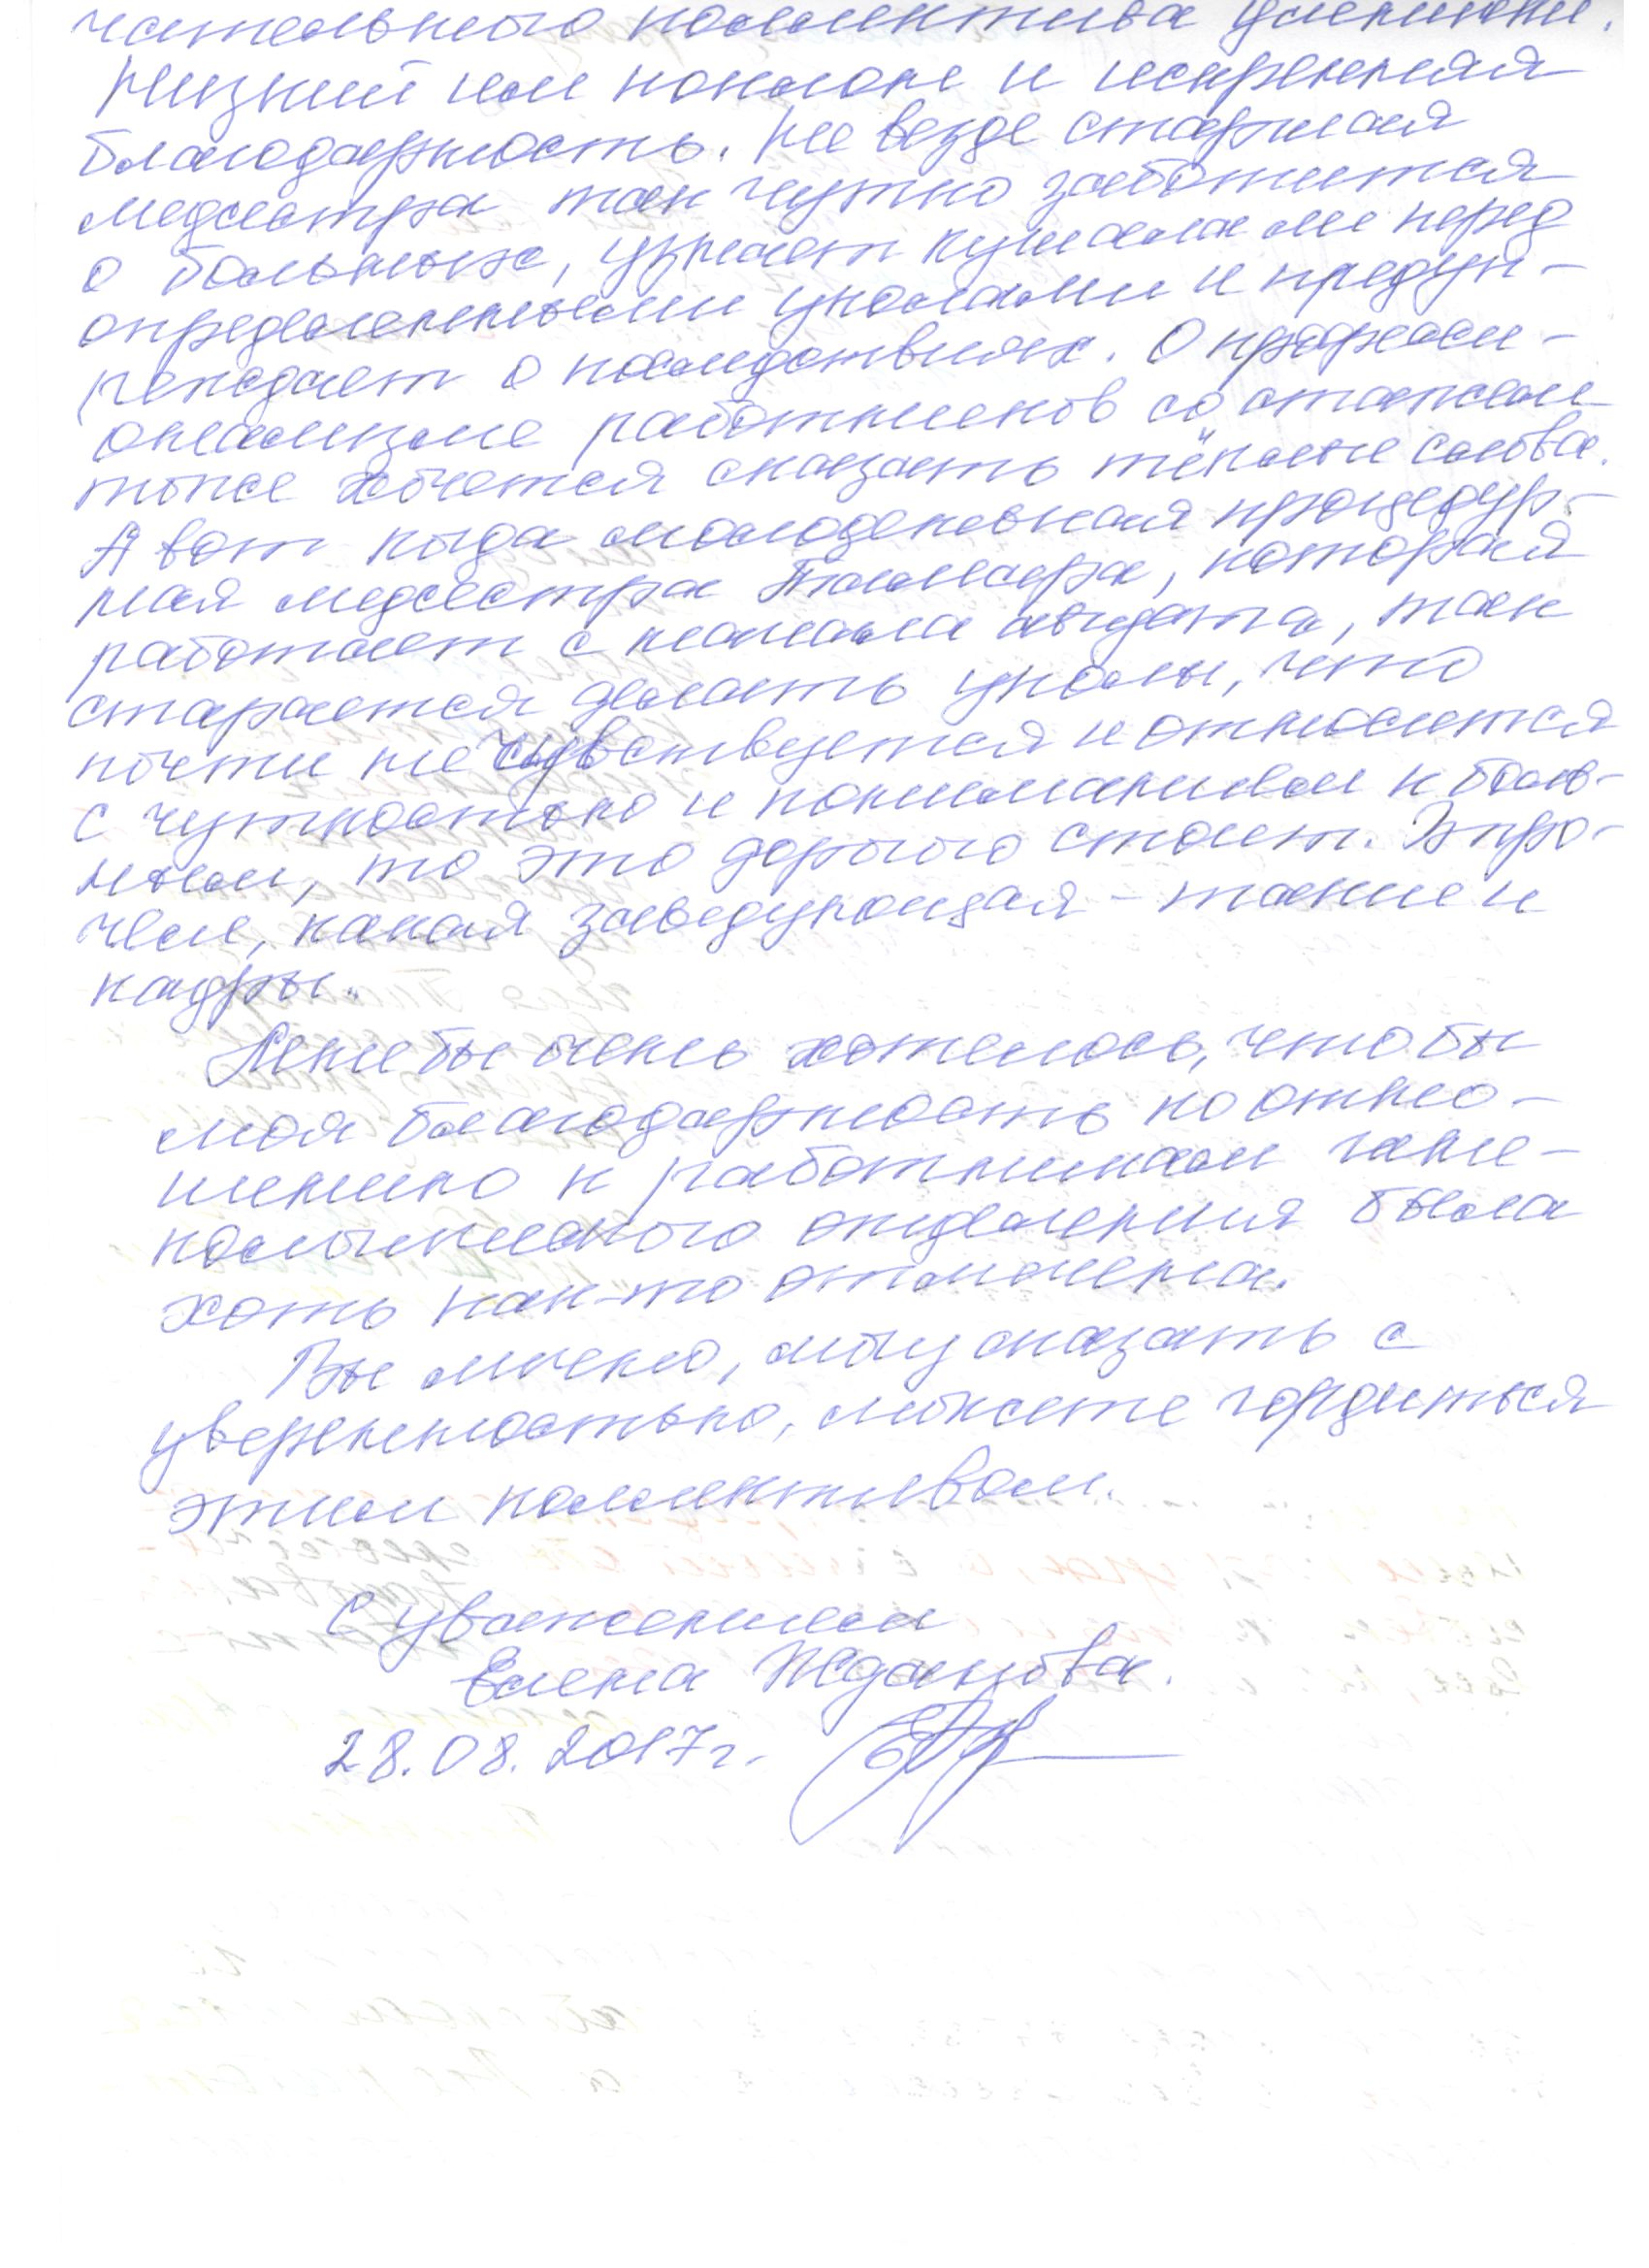 чательного коллектива умеющие.
Низкий им поклон и искренняя
благодарность. Не везде старшая
медсестра так чутко заботится
о больных, узнает кушала ли перед
определенными уколами и предуп-
реждает о последствиях. О професси-
онализме работников со стажем
тоже хочется сказать тёплые слова.
А вот когда молоденькая процедур-
ная медсестра Тамара, которая
работает с начала августа, так
старается делать уколы, что
почти не чувствуется и относится
с чуткостью и пониманием к боль-
ным, то это дорогого стоит. Впро-
чем, какая заведующая – такие и
кадры.
Мне бы очень хотелось, что бы
моя благодарность по отно-
шению к работникам гине-
кологического отделения была
хоть как-то отмечена.
Вы лично, могу сказать с
уверенностью, можете гордиться
этим коллективом.
С уважением
Елена Жданова.
28.08.2017г.